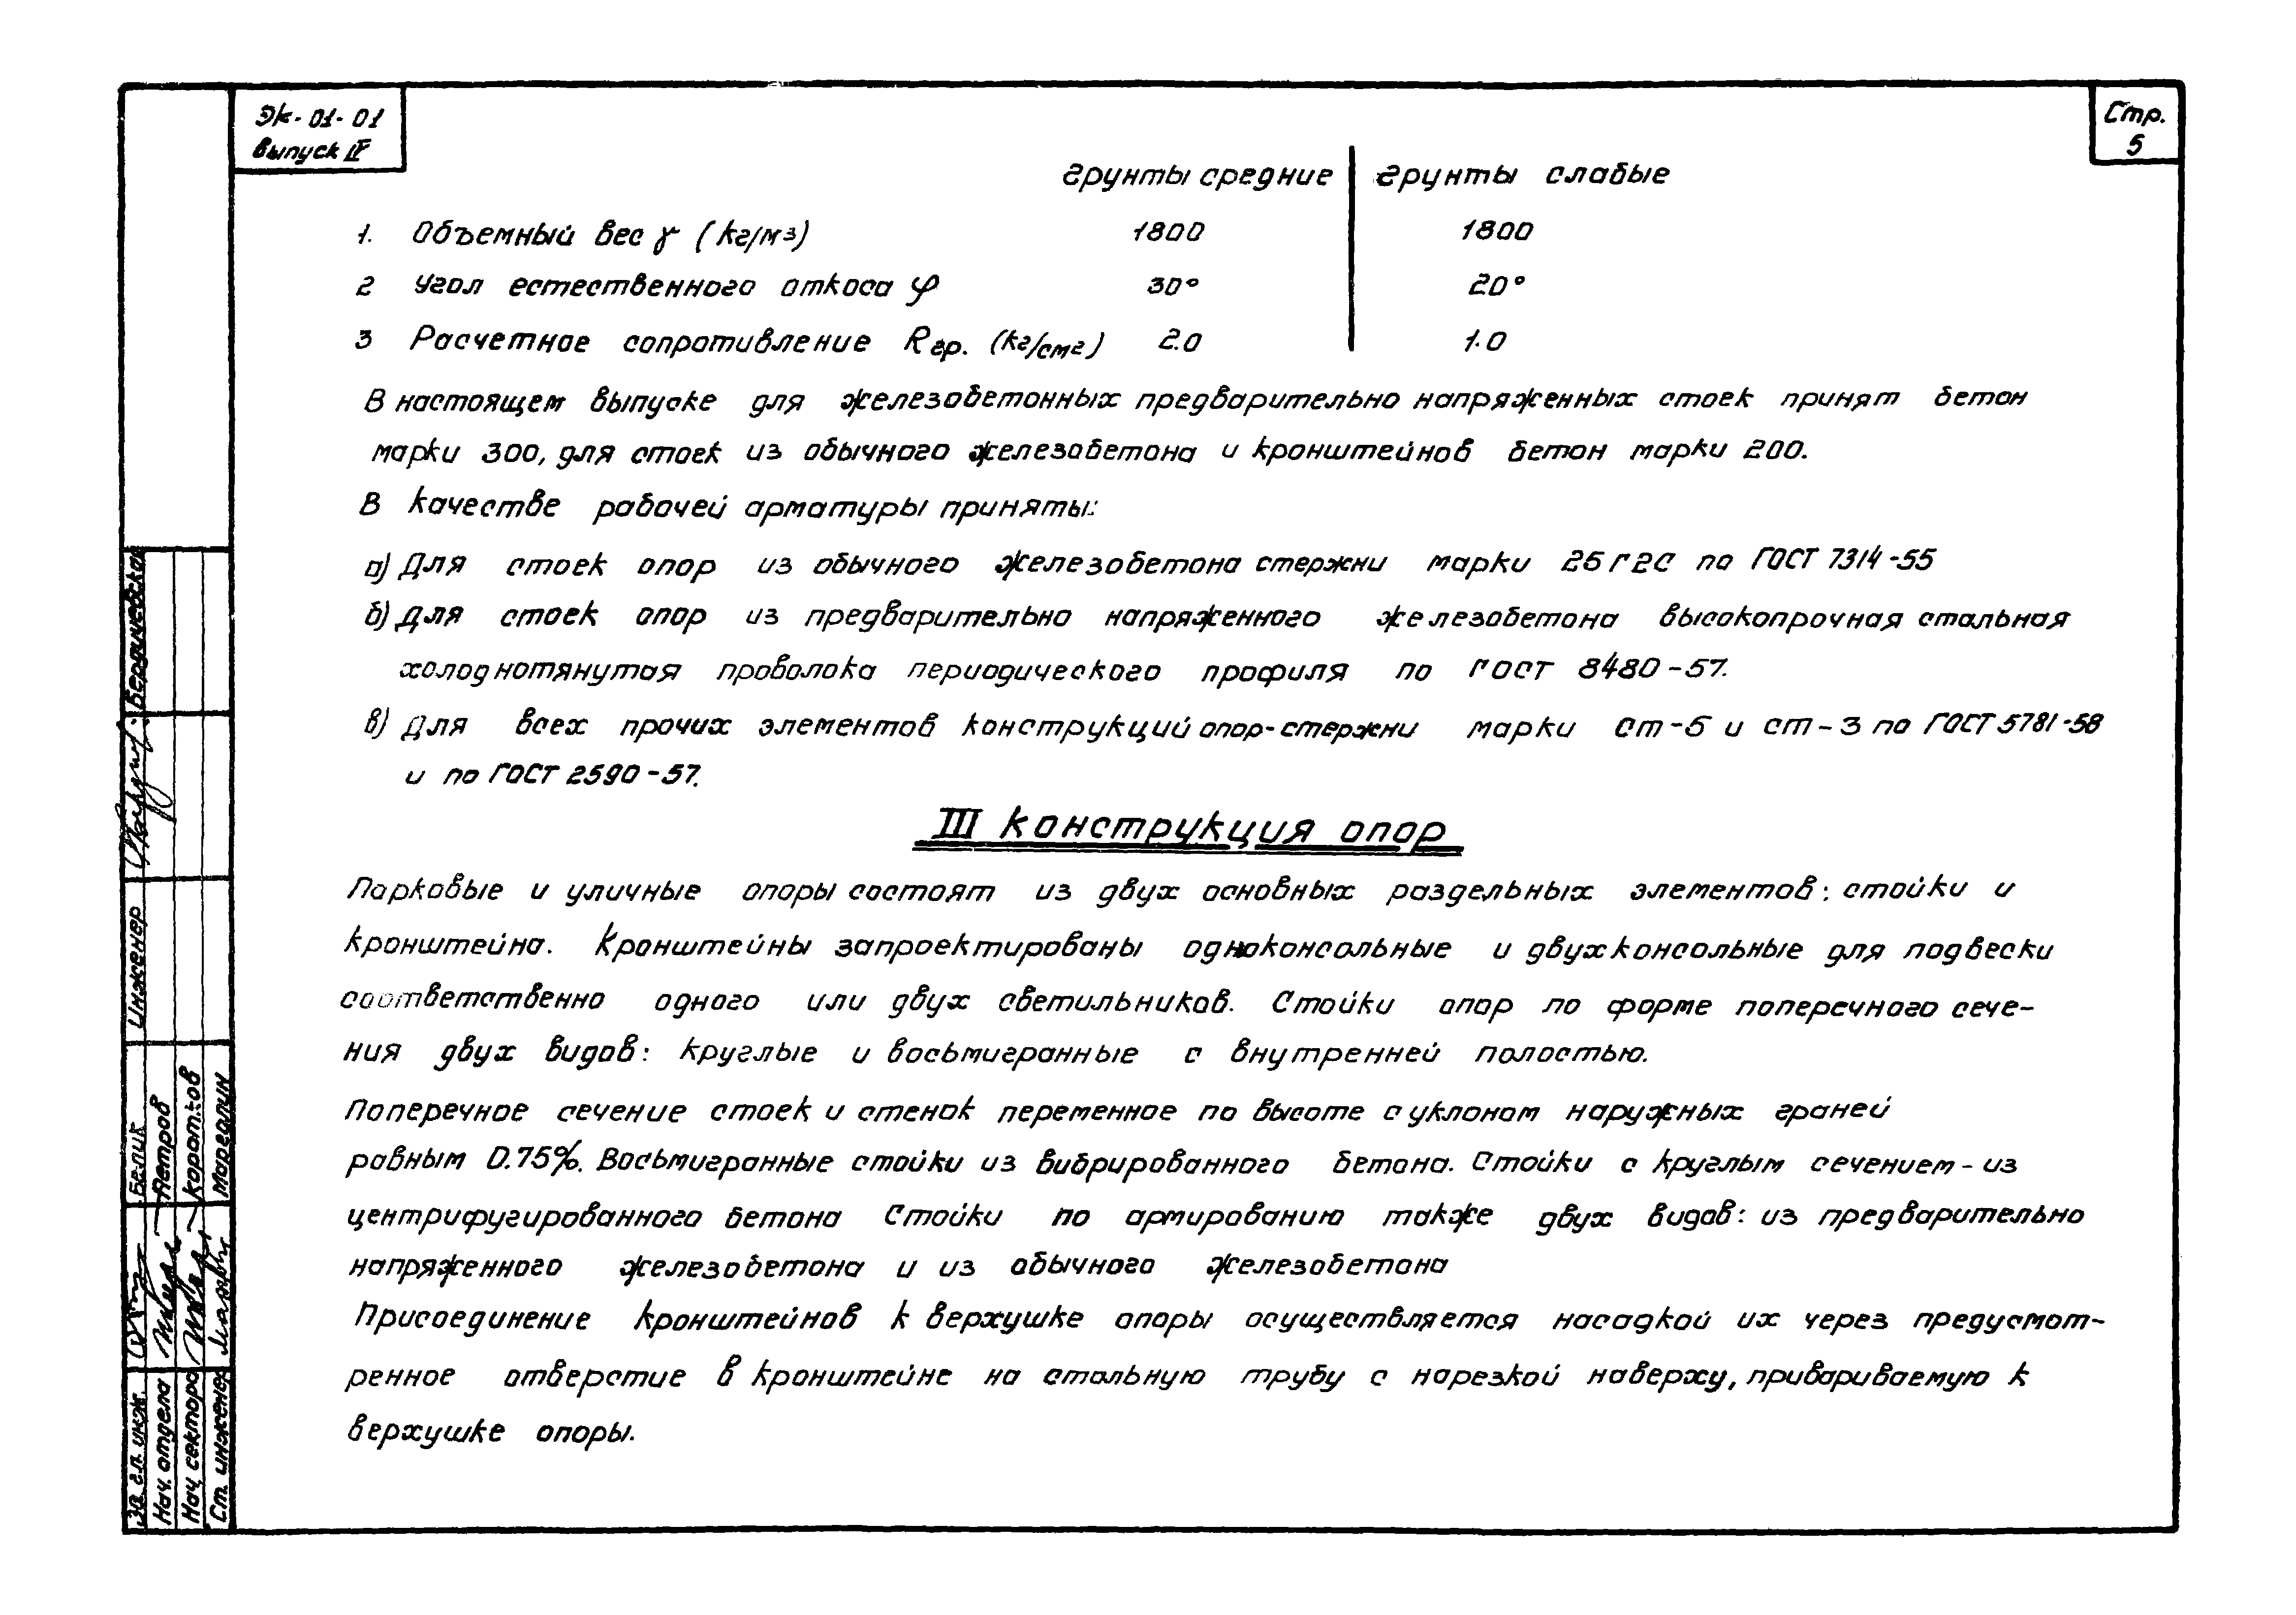 ЭК-01-01
Выпуск IV
Стр.
5
грунты средние грунты слабые
1. Объемный вес γ (кг/м3) 1800 1800
2 Угол естественного откоса φ 30° 20°
3 Расчетное сопротивление Rгр. (кг/см2) 2.0 1.0
В настоящем выпуске для железобетонных предварительно напряженных стоек принят бетон
марки 300, для стоек из обычного железобетона и кронштейнов бетон марки 200.
В качестве рабочей арматуры приняты:
а) Для стоек опор из обычного железобетона стержни марки 25Г2С по ГОСТ 7314-55
б) Для стоек опор из предварительно напряженного железобетона высокопрочная стальная
холоднотянутая проволока периодического профиля по ГОСТ 8480-57.
в) Для всех прочих элементов конструкций опор-стержни марки Ст-5 и Ст-3 по ГОСТ 5781-58
и по ГОСТ 2590-57.
III Конструкция опор
Парковые и уличные опоры состоят из двух основных раздельных элементов: стойки и
кронштейна. Кронштейны запроектированы одноконсольные и двухконсольные для подвески
соответственно одного или двух светильников. Стойки опор по форме поперечного сече-
ния двух видов: круглые и восьмигранные с внутренней полостью.
Поперечное сечение стоек и стенок переменное по высоте с уклоном наружных граней
равным 0.75%. Восьмигранные стойки из вибрированного бетона. Стойки с круглым сечением - из
центрифугированного бетона Стойки по армированию также двух видов: из предварительно
напряженного железобетона и из обычного железобетона
Присоединение кронштейнов к верхушке опоры осуществляется насадкой их через предусмот-
ренное отверстие в кронштейне на стальную трубу с нарезкой наверху, привариваемую к
верхушке опоры.
Зв. гл. инж. Белик Инженер Бердичевская
Нач. отдела Петров
Нач. сектора Коротков
Ст. инженер Марголин